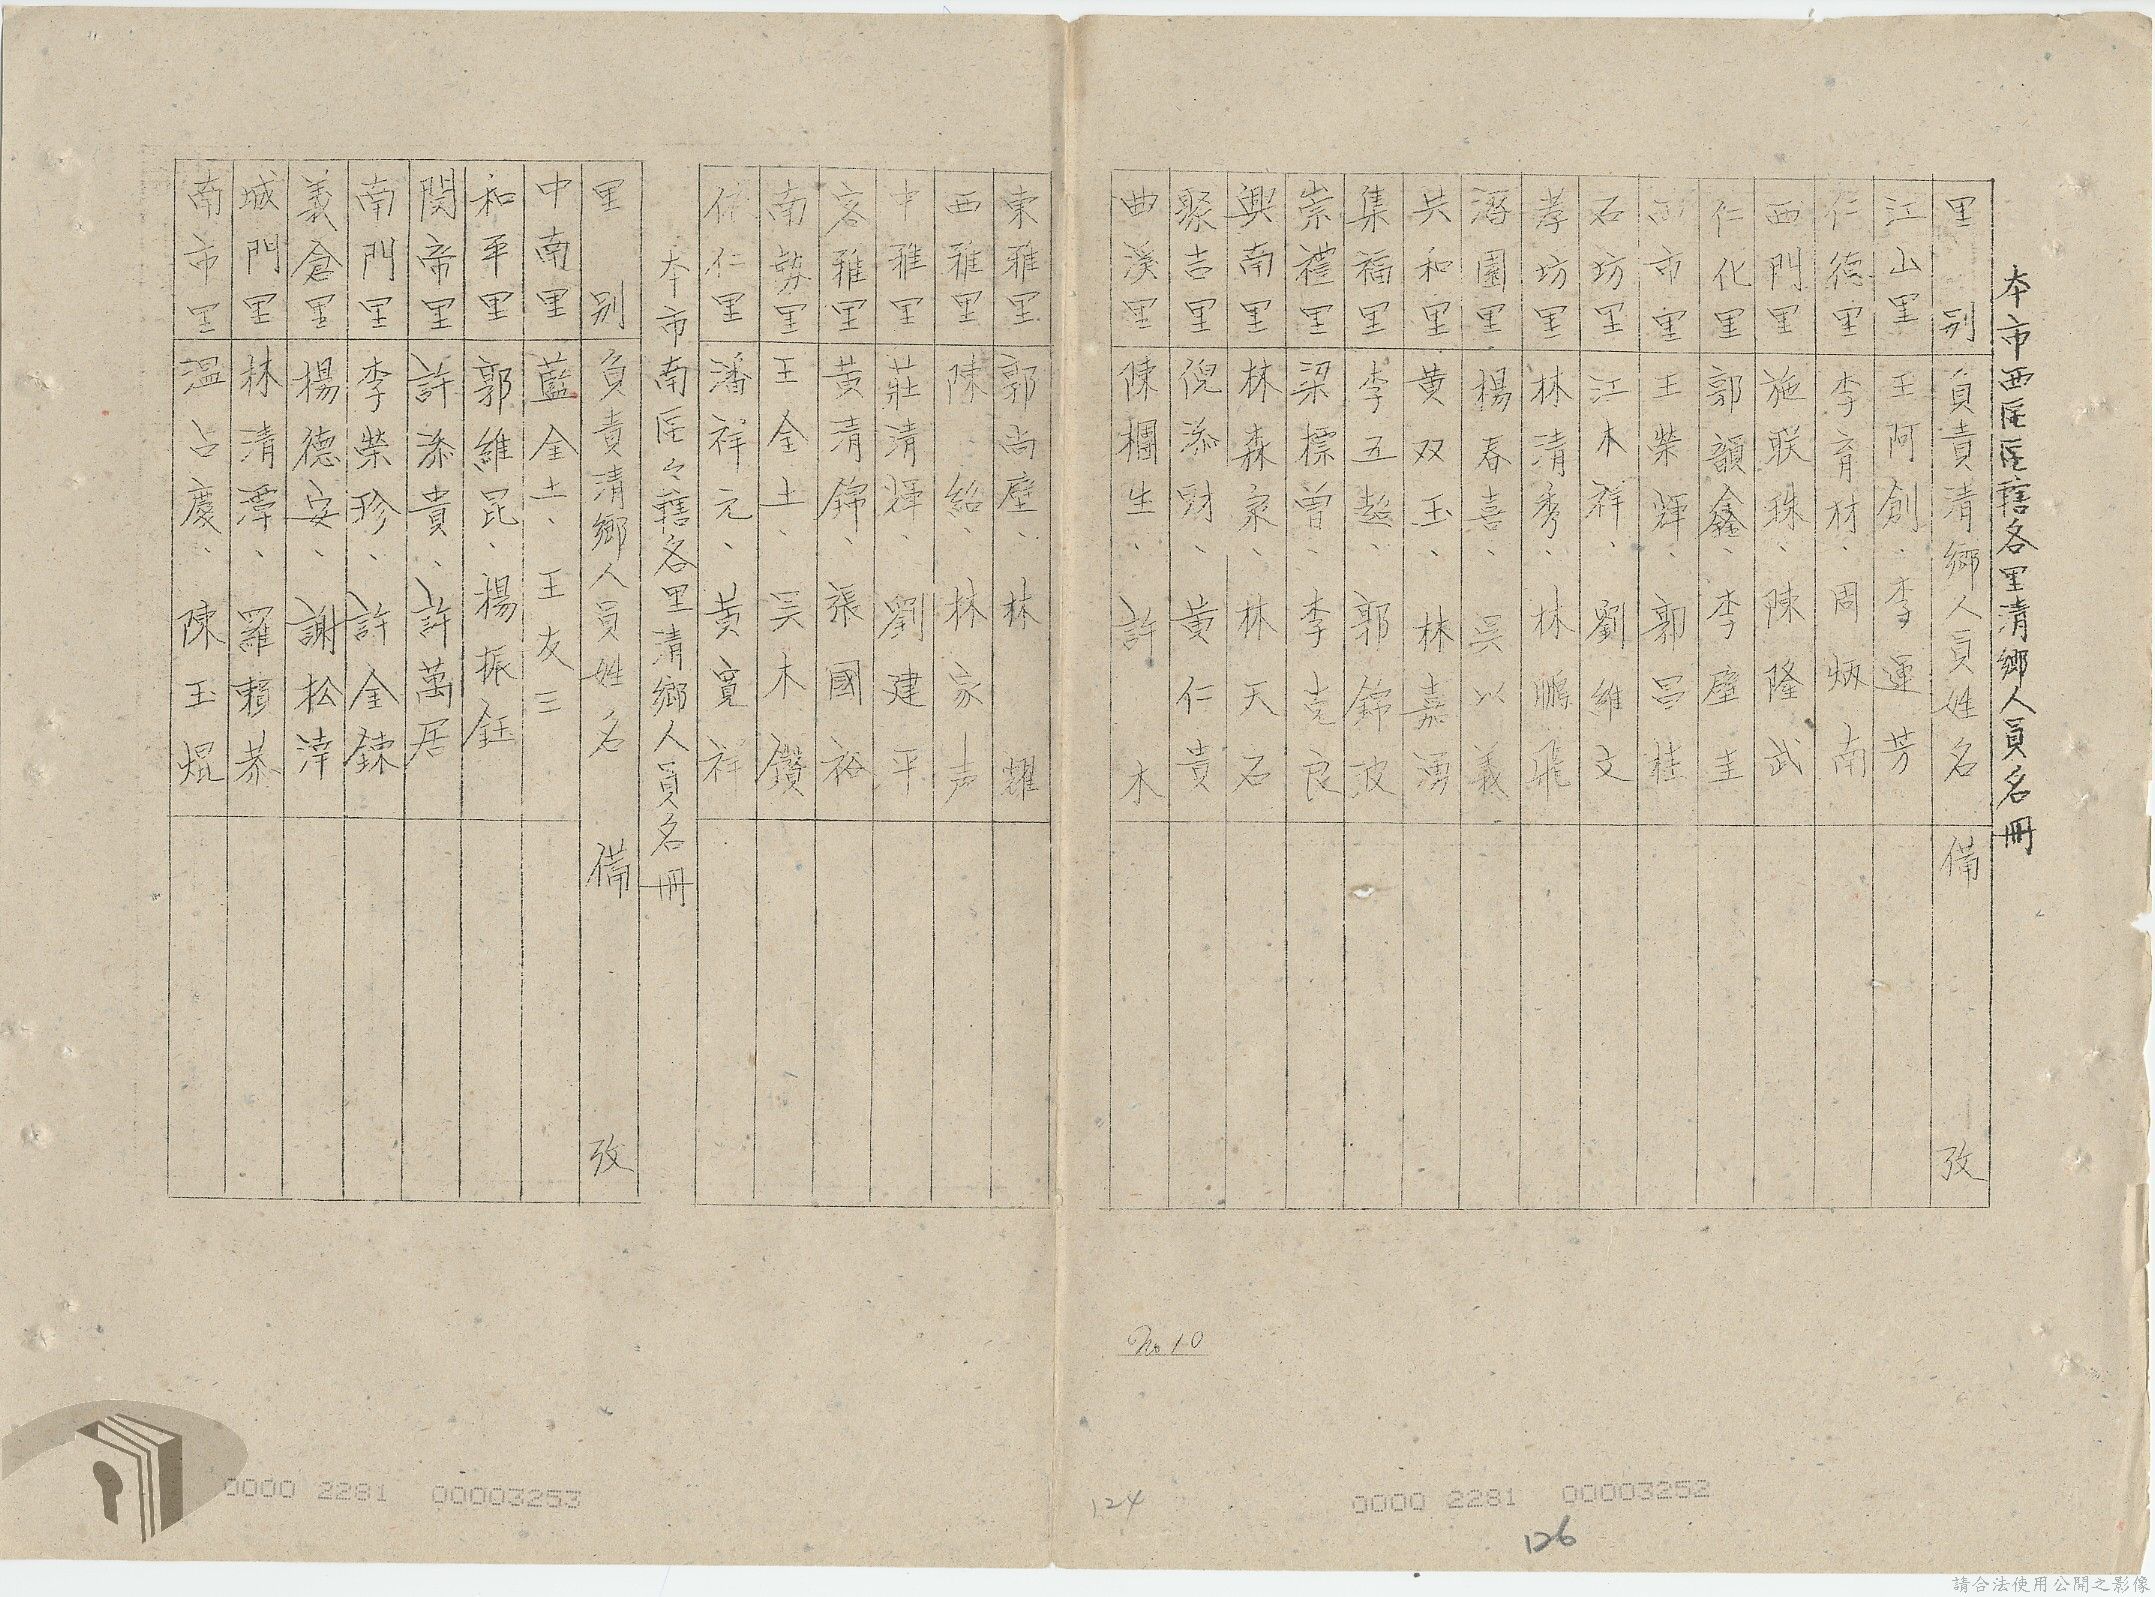 本市西區區轄各里清鄉人員名冊
里別 負責清鄉人員姓名 備攷
江山里 王阿創、李運芳
仁德里 李育材、周炳南
西門里 施联珠、陳隆武
仁化里 郭韻鑫、李壁圭
西市里 王榮輝、郭呂桂
石坊里 江木祥、劉維文
孝坊里 林清秀、林鵬飛
潛園里 楊春喜、吳以義
共和里 黄双玉、林嘉湧
集福里 李五趂、郭錦波
崇禮里 梁標曽、李克良
興南里 林森泉、林天石
聚吉里 倪添財、黃仁貴
曲溪里 陳欗生、許木
東雅里 郭尚壁、林耀
西雅里 陳紹、林家声
中雅里 莊清輝、劉建平
客雅里 黃清錦、張國裕
南勢里 王全土、吳木鑽
依仁里 潘祥元、黃寬祥
本市南區々轄各里清鄉人員名冊
里別 負責清鄉人員姓名 備攷
中南里 藍金土、王友三
和平里 郭維昆、楊振鈺
関帝里 許添貴、許萬居
南門里 李榮珍、許金鍊
義倉里 楊德安、謝松涬
城門里 林清潭、羅賴恭
南市里 溫占慶、陳玉焜
No 10
124
126
0000 2281 00003252
0000 2281 00003253
請合法使用公開之影像